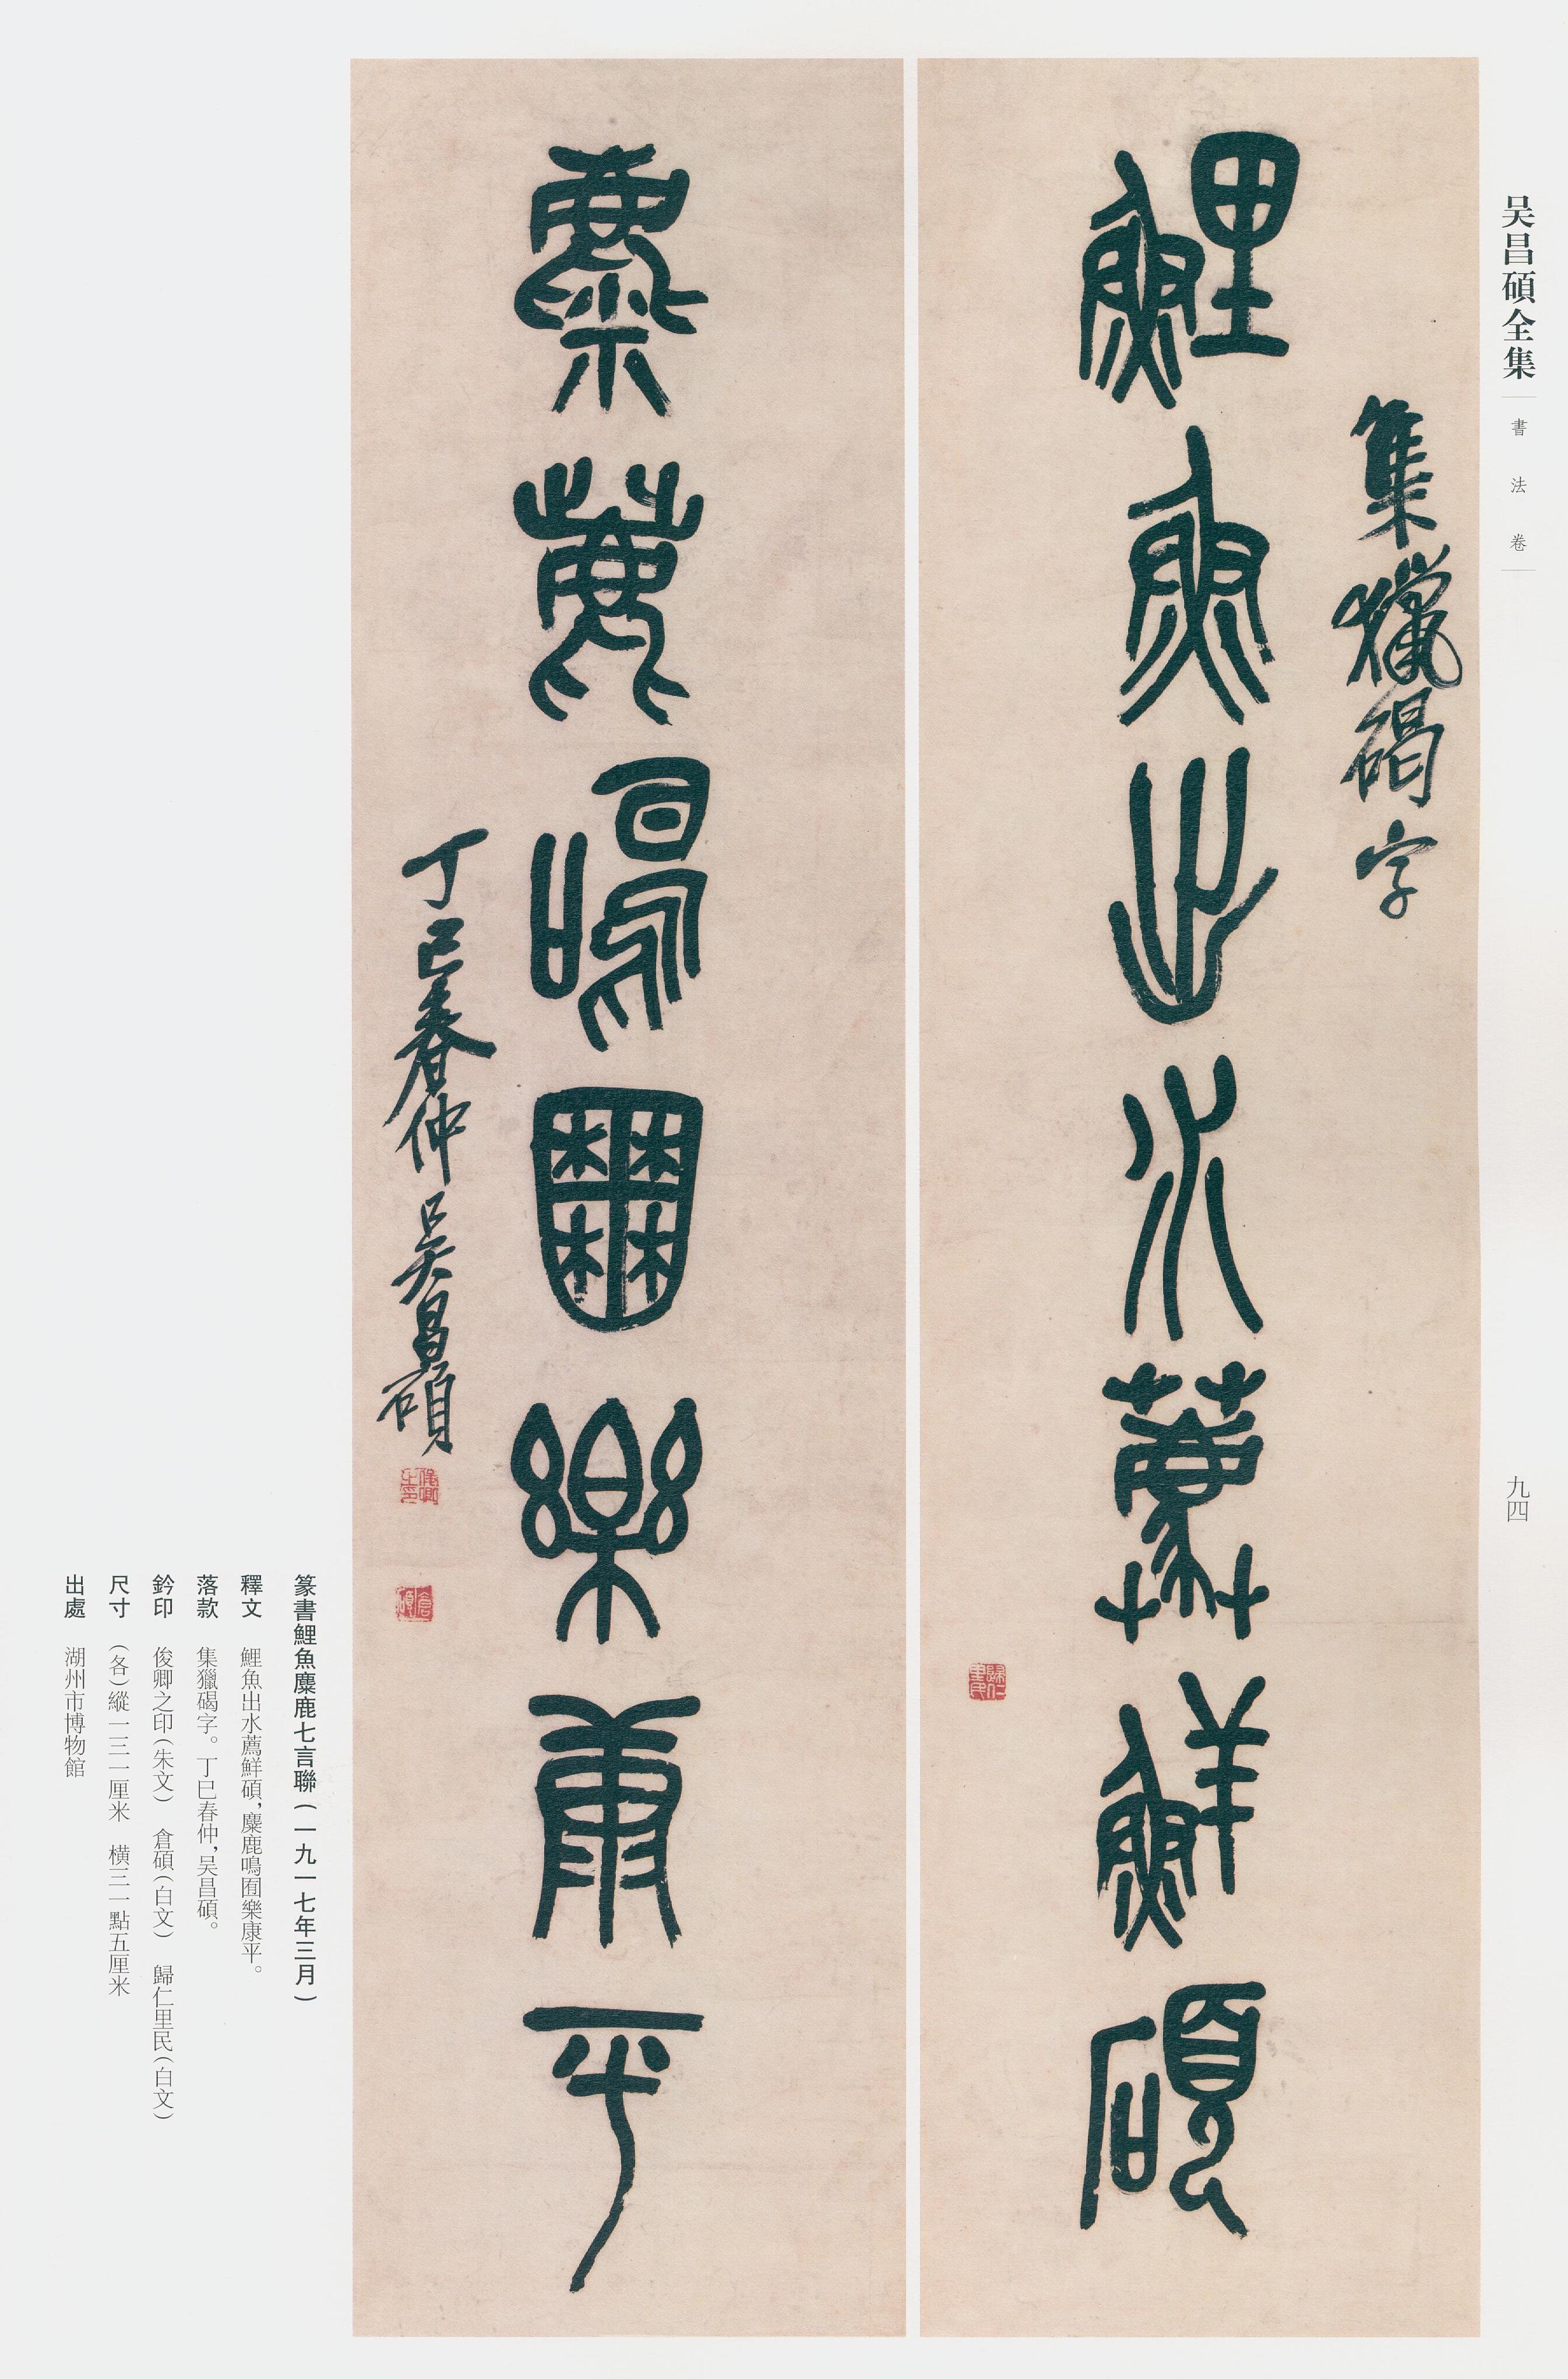 吴昌碩全集
書法卷
九四
集獵碣字
鯉魚出水薦鮮碩
麋鹿鳴囿樂康平
丁巳春仲吴昌碩
歸仁里民
俊卿之印
倉碩
篆書鯉魚麋鹿七言聯（一九一七年三月）
釋文　鯉魚出水薦鮮碩，麋鹿鳴囿樂康平。
落款　集獵碣字。丁巳春仲，吴昌碩。
鈐印　俊卿之印（朱文）　倉碩（白文）　歸仁里民（白文）
尺寸　（各）縱一三一厘米　橫三一點五厘米
出處　湖州市博物館